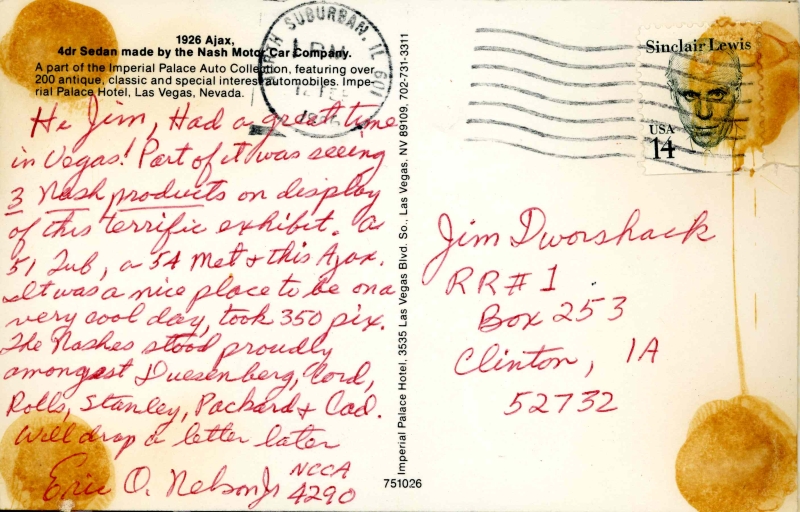 1926 Ajax,
4dr Sedan made by the Nash Motor Car Company.
A part of the Imperial Palace Auto Collection, featuring over
200 antique, classic and special interest automobiles. Impe-
rial Palace Hotel, Las Vegas, Nevada.
Hi Jim, Had a great time
in Vegas! Part of it was seeing
3 Nash products on display
of this terrific exhibit. a
51 Jub, a 54 Met + this Ajax.
It was a nice place to be on a
very cool day, took 350 pix.
The Nashes stood proudly
amongst Duesenberg, Cord,
Rolls, Stanley, Packard + Cad.
Will drop a letter later
Eric O. Nelson Jr
NCCA
4290
Imperial Palace Hotel, 3535 Las Vegas Blvd. So., Las Vegas, NV 89109, 702-731-3311
751026
NORTH SUBURBAN IL 60
PM
12 FEB
Sinclair Lewis
USA
14
Jim Dworshack
RR# 1
Box 253
Clinton, IA
52732